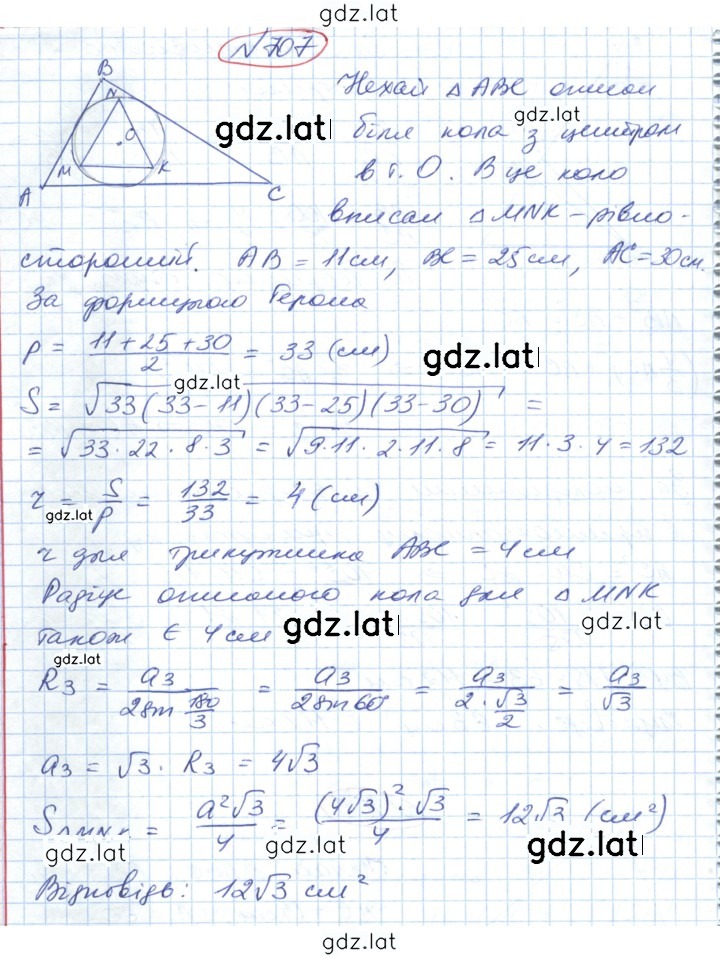 gdz.lat
№707
B
N
O
M
K
A
C
Нехай △ABC описан
gdz.lat
біля кола з центром
gdz.lat
в т. O. В це коло
вписан △MNK - рівно-
сторонній. AB = 11 см, BC = 25 см, AC = 30 см.
За формулою Герона
p = (11 + 25 + 30)/2 = 33 (см)
gdz.lat
gdz.lat
S = √33(33 - 11)(33 - 25)(33 - 30) =
= √33 · 22 · 8 · 3 = √9 · 11 · 2 · 11 · 8 = 11 · 3 · 4 = 132
r = S/p = 132/33 = 4 (см)
gdz.lat
r для трикутника ABC = 4 см
Радіус описаного кола для △MNK
також є 4 см
gdz.lat
gdz.lat
gdz.lat
R₃ = a₃/(2sin 180/3) = a₃/(2sin60) = a₃/(2 · √3/2) = a₃/√3
a₃ = √3 · R₃ = 4√3
S△MNK = a²√3/4 = (4√3)² · √3/4 = 12√3 (см²)
gdz.lat
gdz.lat
gdz.lat
Відповідь: 12√3 см²
gdz.lat